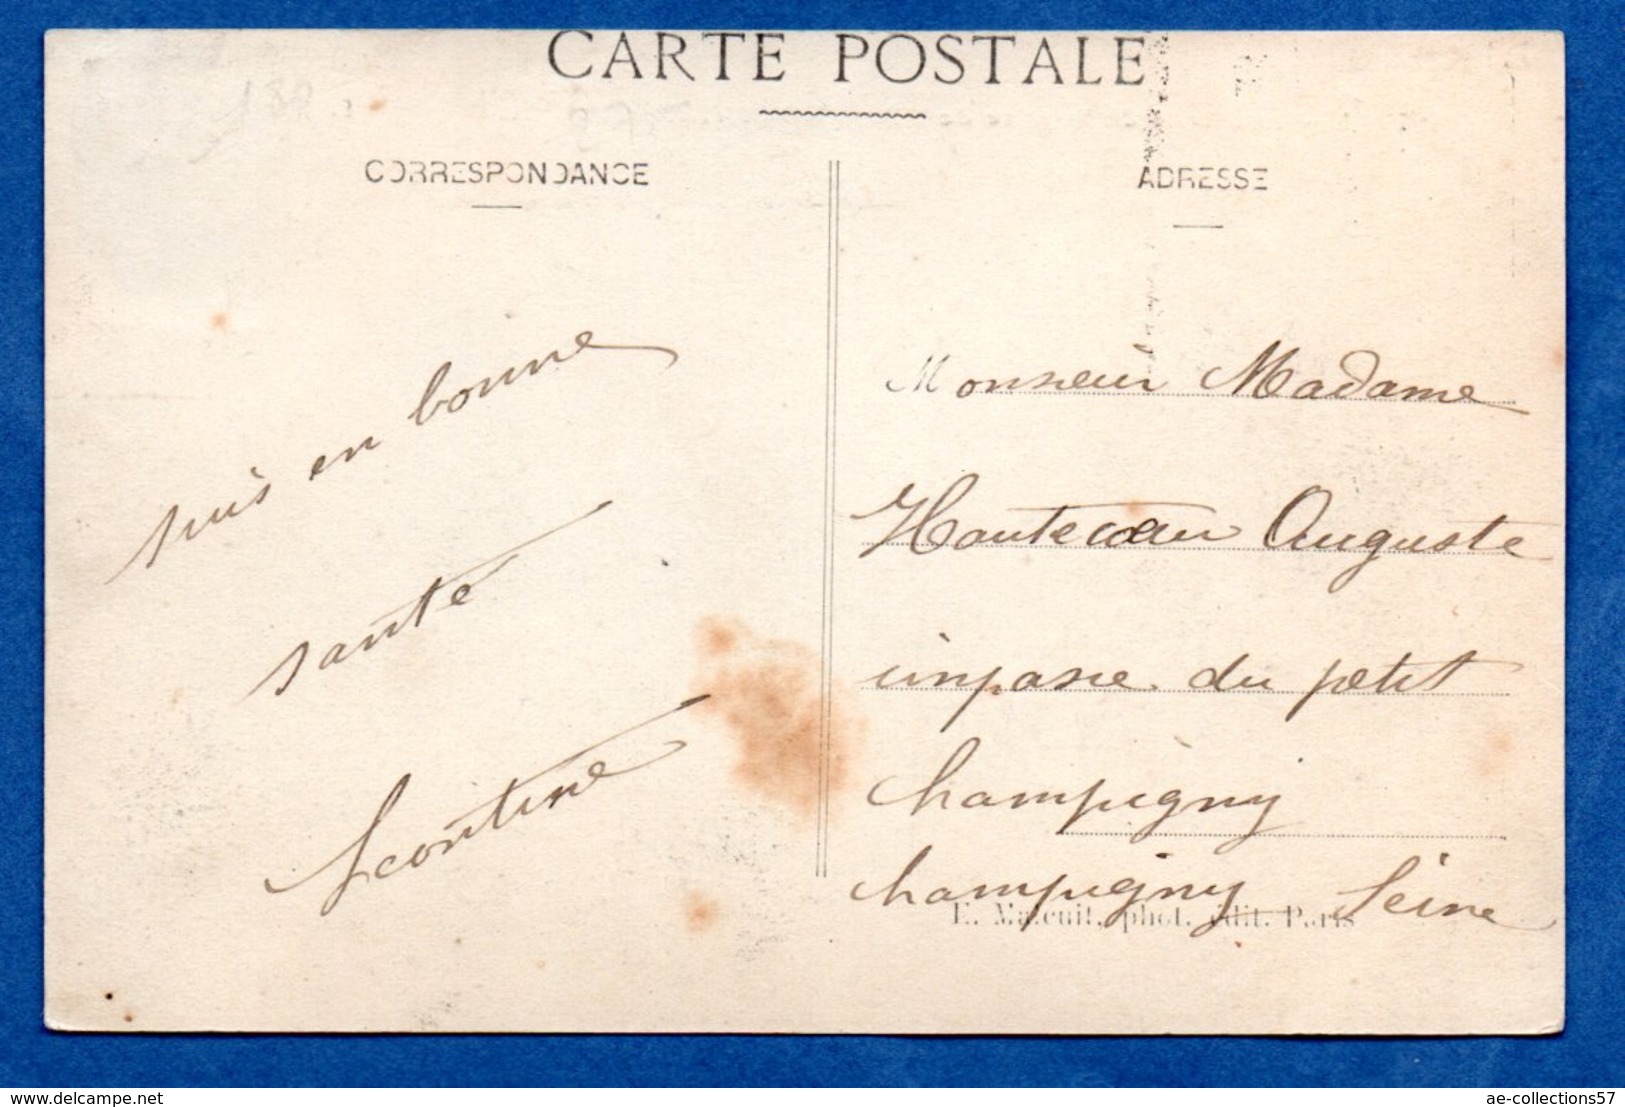 CARTE POSTALE
CORRESPONDANCE
ADRESSE
suis en bonne
santé
Leontine
Monsieur Madame
Hautecœur Auguste
impasse du petit
Champigny
Champigny Seine
E. Malcuit, phot. édit. Paris
delcampe.net
ae-collections57